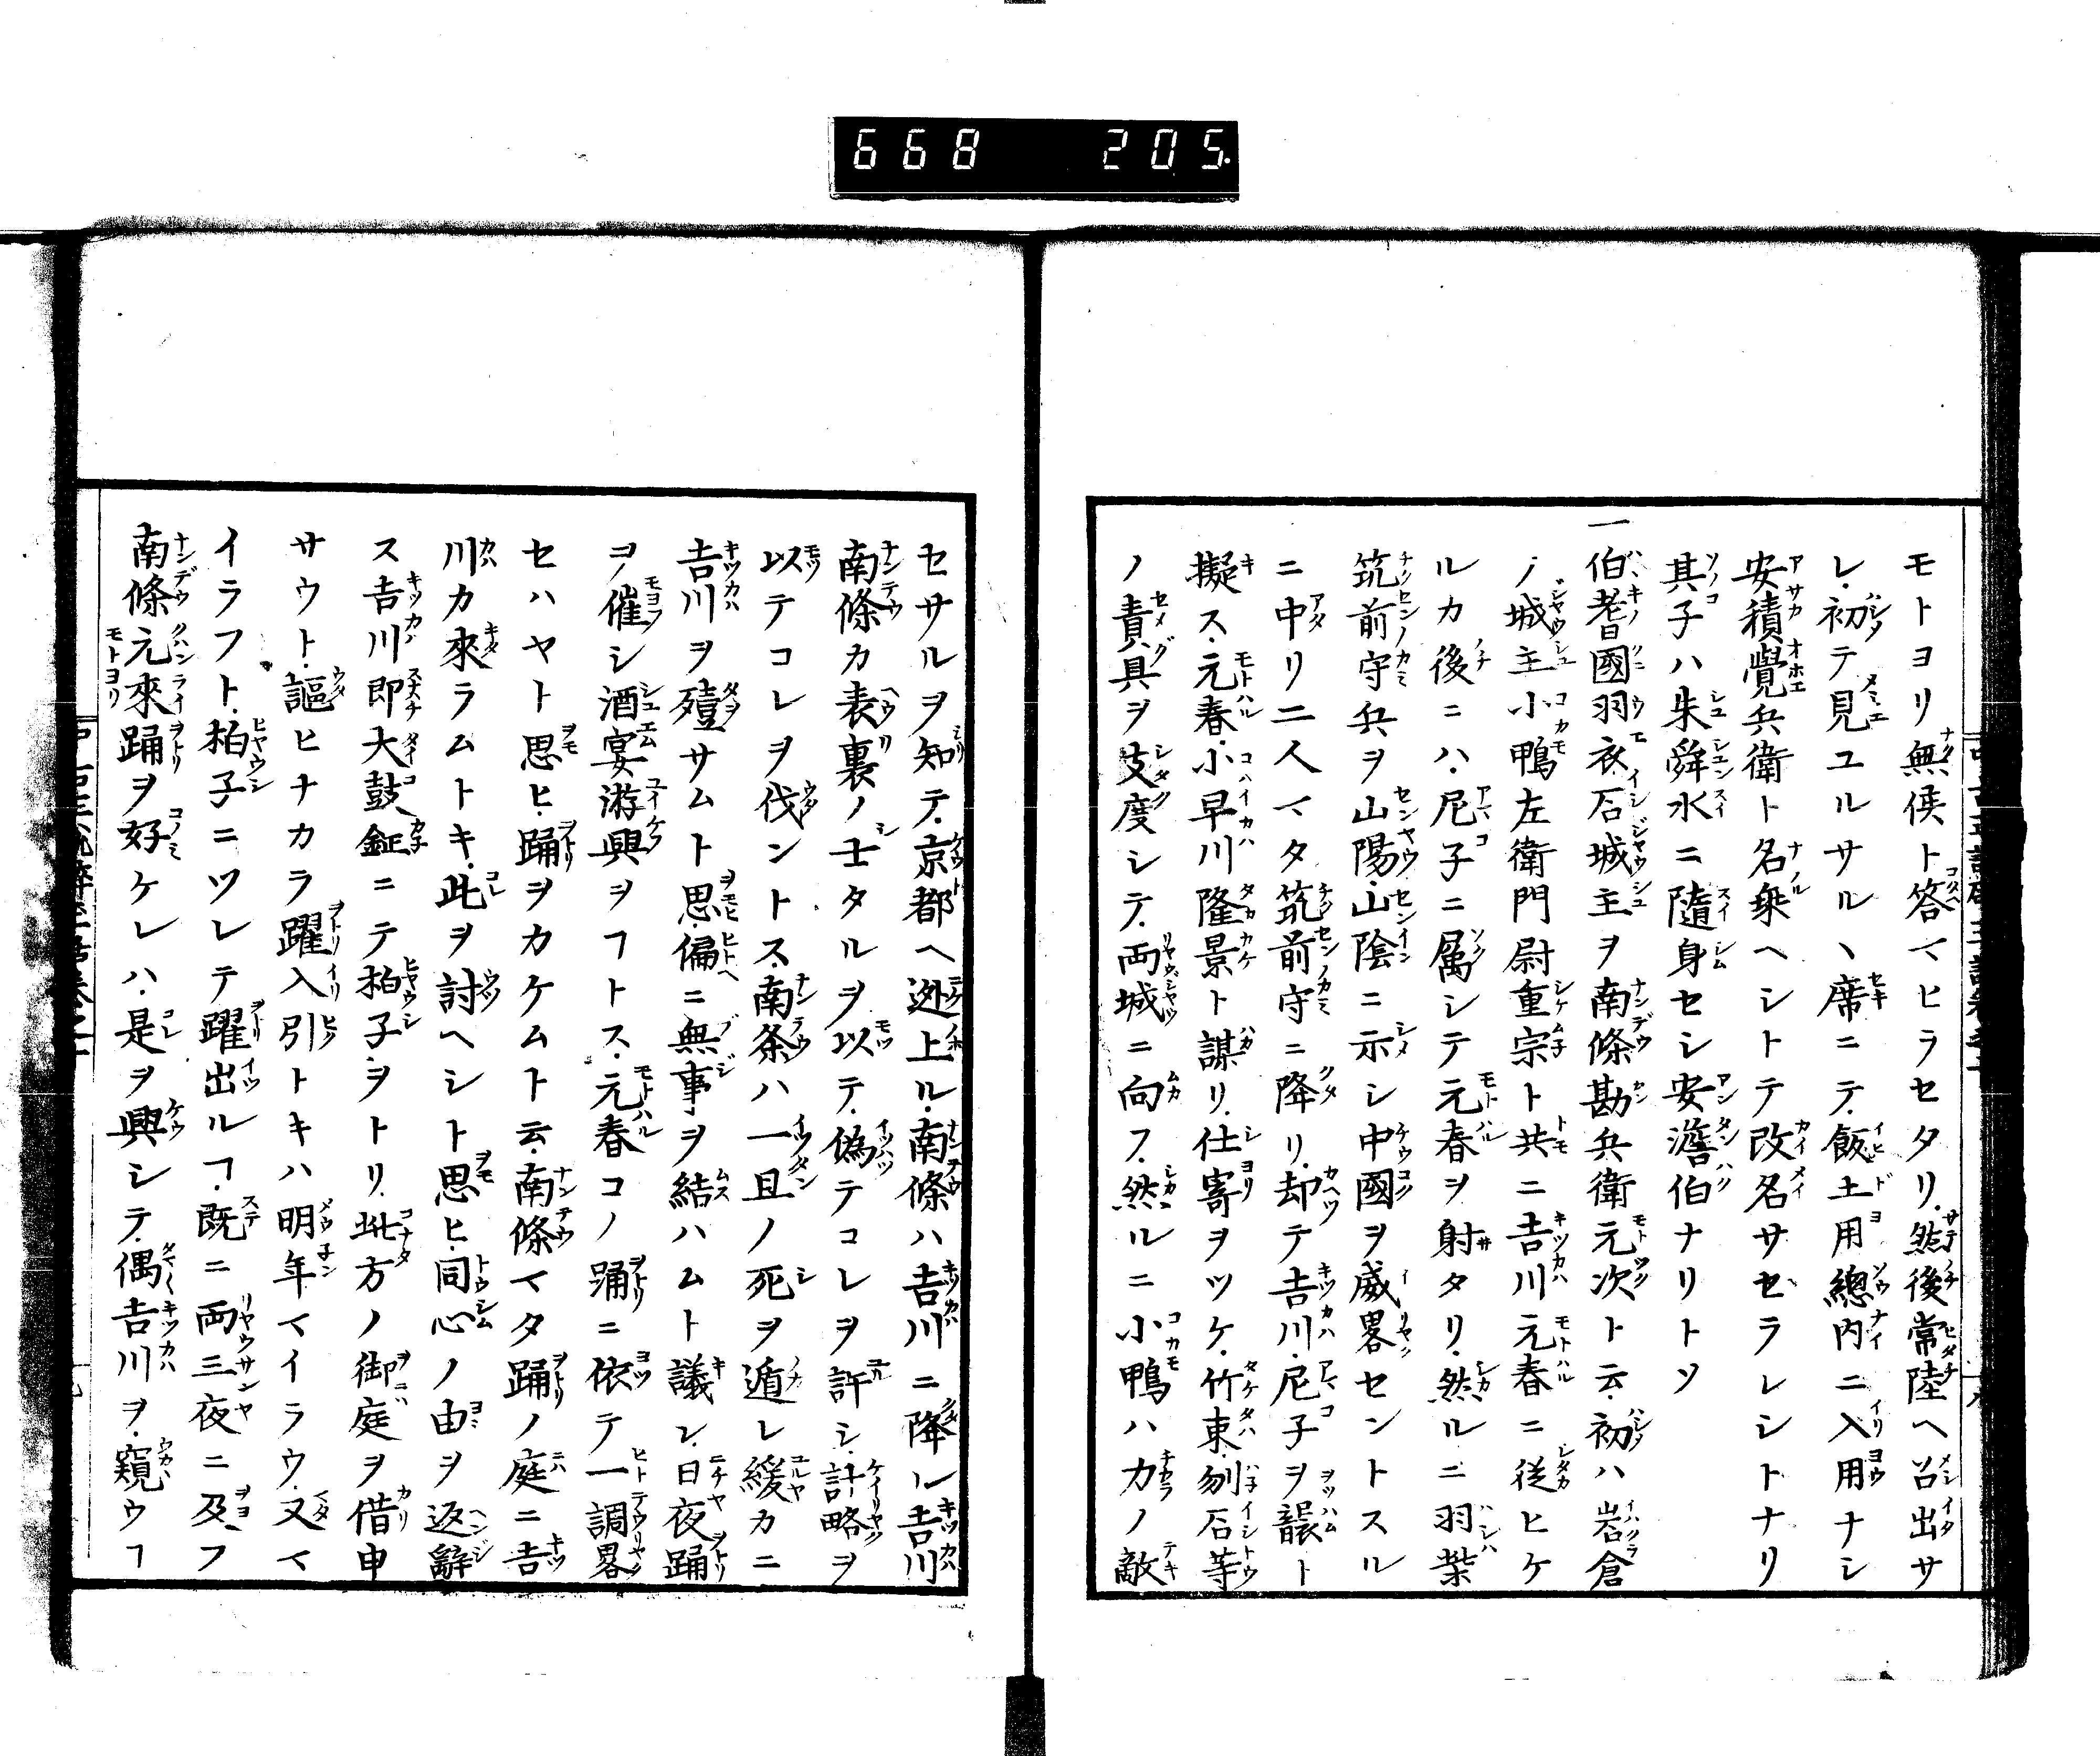 668 205
モトヨリ無候ト答マヒラセタリ然後常陸ヘ召出サ
レ初テ見ユルサルヽ席ニテ飯土用總内ニ入用ナシ
安積覺兵衛ト名乗ヘシトテ改名サセラレシトナリ
其子ハ朱舜水ニ隨身セシ安澹伯ナリトソ
一伯耆國羽衣石城主ヲ南條勘兵衛元次ト云初ハ岩倉
ノ城主小鴨左衛門尉重宗ト共ニ吉川元春ニ従ヒケ
ルカ後ニハ尼子ニ属シテ元春ヲ射タリ然ルニ羽柴
筑前守兵ヲ山陽山陰ニ示シ中國ヲ威畧セントスル
ニ中リ二人マタ筑前守ニ降リ却テ吉川尼子ヲ襲ト
擬ス元春小早川隆景ト謀リ仕寄ヲツケ竹束刎石等
ノ責具ヲ支度シテ両城ニ向フ然ルニ小鴨ハカノ敵
セサルヲ知テ京都ヘ迯上ル南條ハ吉川ニ降ル吉川
南條カ表裏ノ士タルヲ以テ偽テコレヲ許シ計略ヲ
以テコレヲ伐ントス南条ハ一旦ノ死ヲ遁レ緩カニ
吉川ヲ殪サムト思偏ニ無事ヲ結ハムト議シ日夜踊
ヲ催シ酒宴游興ヲフトス元春コノ踊ニ依テ一調畧
セハヤト思ヒ踊ヲカケムト云南條マタ踊ノ庭ニ吉
川カ來ラムトキ此ヲ討ヘシト思ヒ同心ノ由ヲ返辭
ス吉川即大鼓鉦ニテ柏子ヲトリ此方ノ御庭ヲ借申
サウト謳ヒナカラ躍入引トキハ明年マイラウ又マ
イラフト柏子ニツレテ躍出ルヿ既ニ両三夜ニ及フ
南條元來踊ヲ好ケレハ是ヲ興シテ偶吉川ヲ窺ウヿ